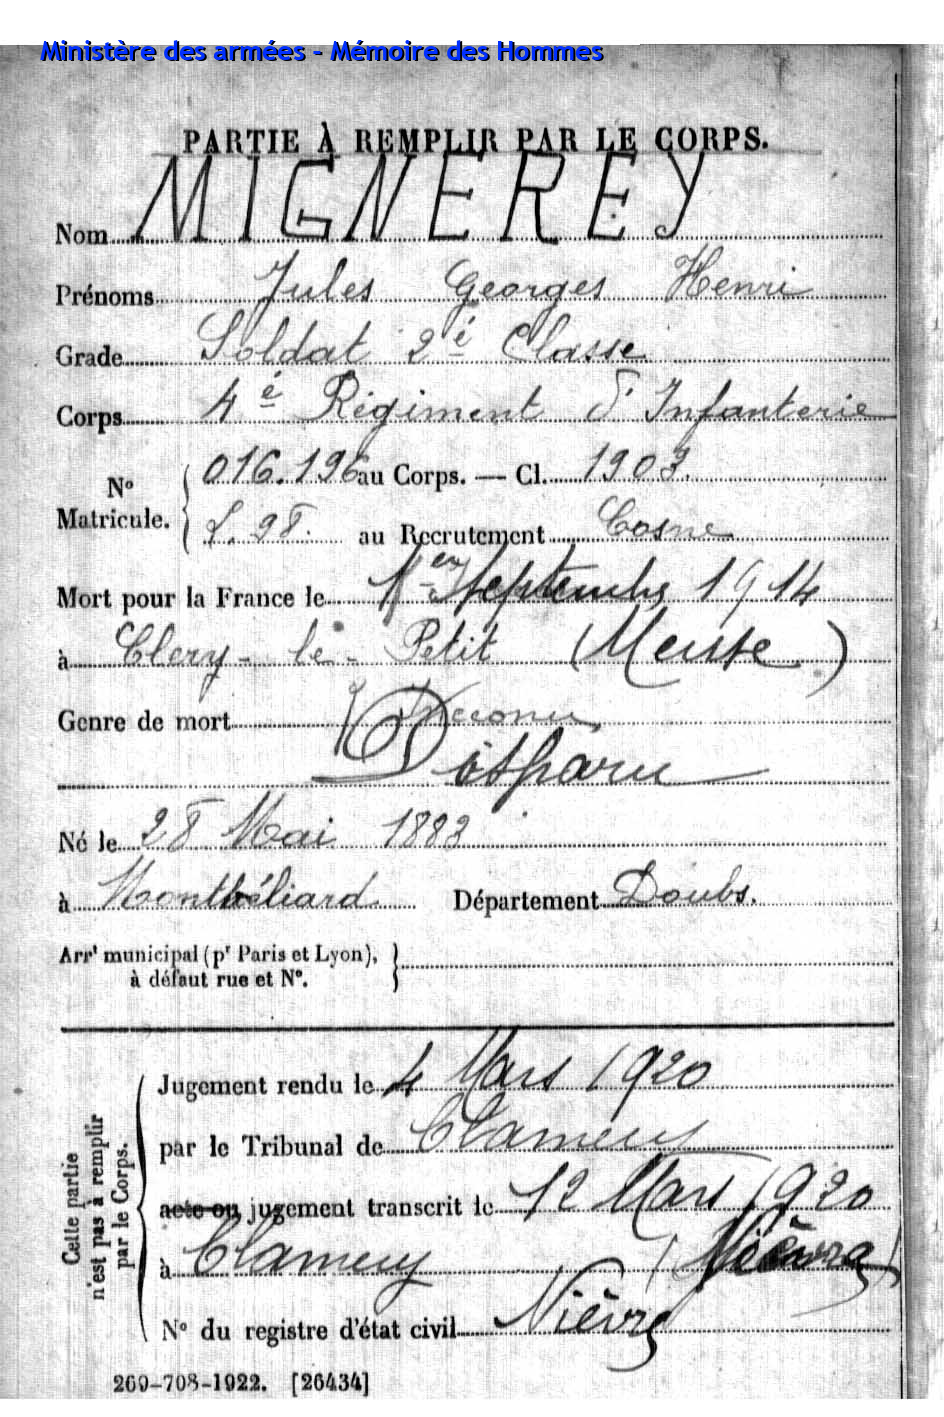 Ministère des armées - Mémoire des Hommes
PARTIE À REMPLIR PAR LE CORPS.
Nom MIGNEREY
Prénoms Jules Georges Henri
Grade Soldat 2è Classe
Corps 4è Régiment d'Infanterie
N° Matricule. 016.196 au Corps. — Cl. 1903.
au Recrutement Cosne
Mort pour la France le 1er Septembre 1914
à Clery-le-Petit (Meuse)
Genre de mort Inconnu
Disparu
Né le 28 Mai 1883
à Montbéliard Département Doubs.
Arrt municipal (pr Paris et Lyon),
à défaut rue et N°.
Cette partie
n'est pas à remplir
par le Corps.
Jugement rendu le 4 Mars 1920
par le Tribunal de Clamecy
acte ou jugement transcrit le 12 Mars 1920
à Clamecy (Nièvre)
N° du registre d'état civil Nièvre
269-708-1922. [26434]